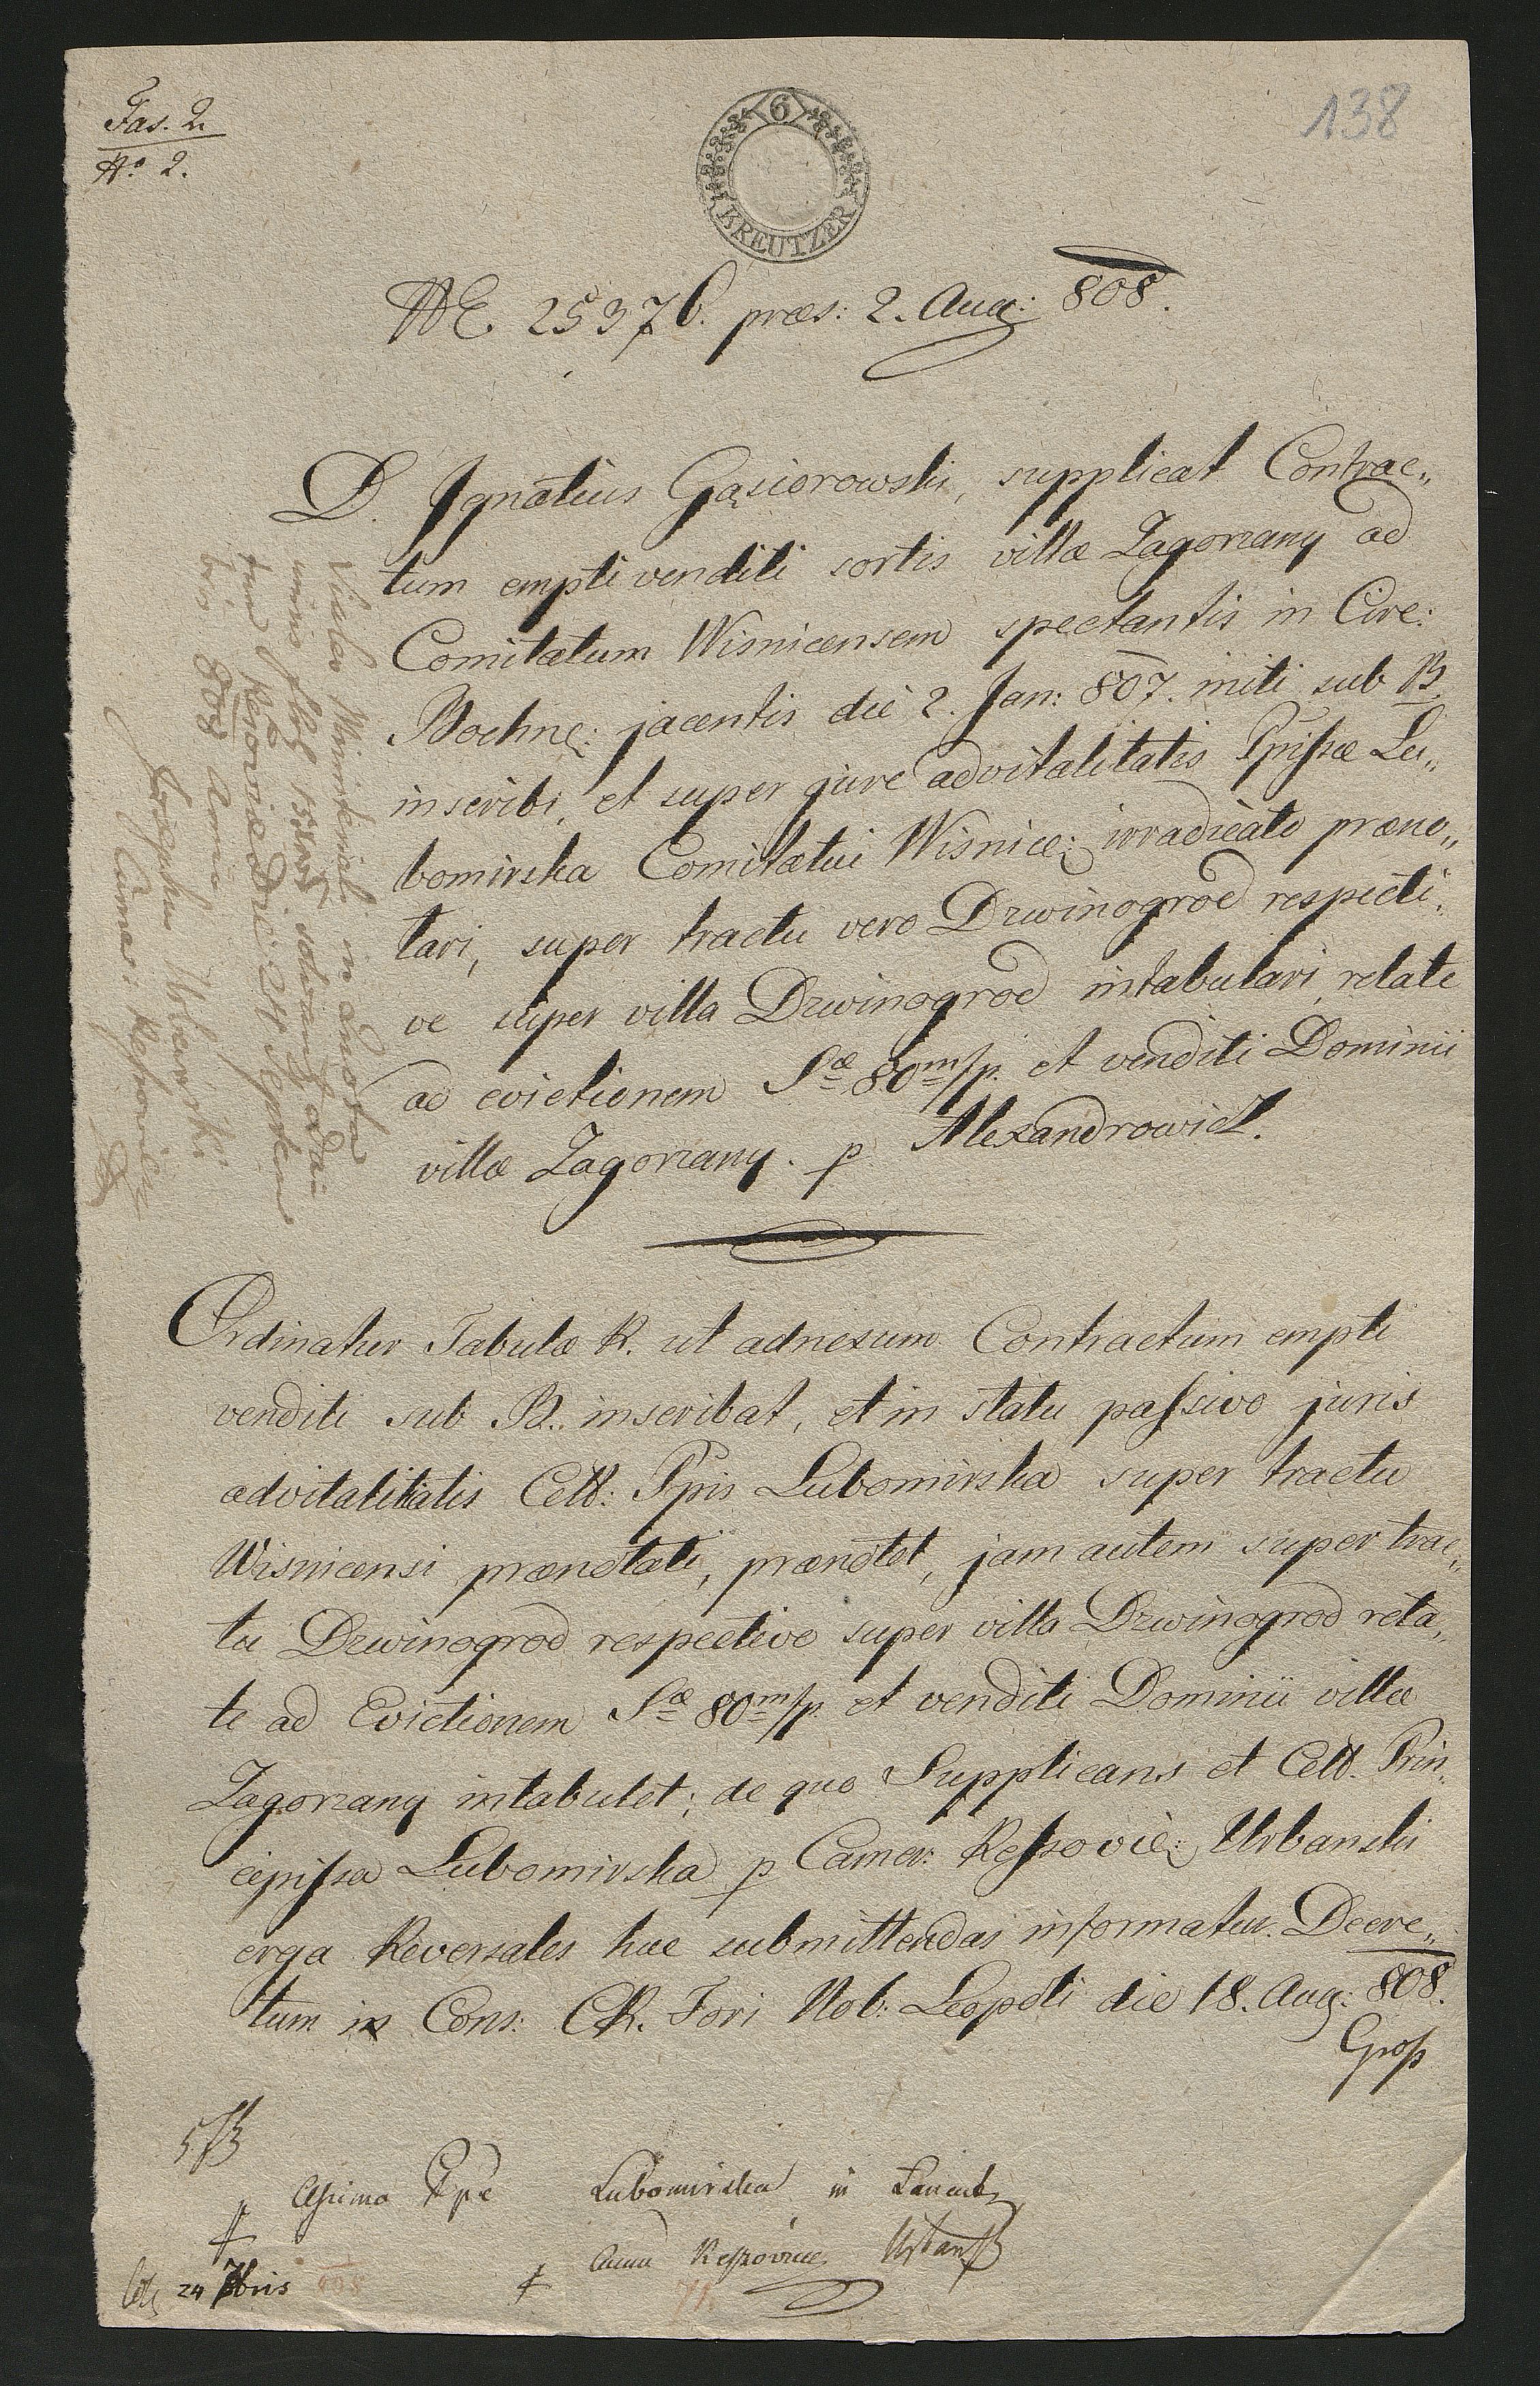 Fas. 2.
No 2.
138
6
KREUTZER
NE. 25376. præs: 2. Aug: 808.
D. Ignatius Gąsiorowski, supplicat Contrac„
tum emptivenditi sortis villæ Zagorzany ad
Comitatum Wisnicensem spectantis in Circ:
Bochnę: jacentis die 2. Jan: 807. initi sub B.
inscribi, et super jure advitalitatis Ppissæ Lu„
bomirska Comitatui Wisnicę: irradicato præno„
tari, super tractu vero Drwinogrod respecti„
ve super villa Drwinogrod intabulari, relate
ad evictionem Sæ 80m/p. et venditi Dominii
villæ Zagorzany. p Alexandrowicz.
Ordinatur Tabulæ R. ut adnexum Contractum empti
venditi sub B. inscribat, et in statu passivo juris
advitalitatis Cels: Ppis Lubomirska super tractu
Wisnicensi prænotati, prænotet, jam autem super trac„
tu Drwinogrod respective super villa Drwinogrod rela„
te ad Evictionem Sæ 80m/p. et venditi Dominii villæ
Zagorzany intabulet; de quo Supplicans et Cels. Prin„
cipissa Lubomirska p Camer: Ressovię: Urbanski
erga Reversales huc submittendas informatur. Decre„
tum in Cons: CR. Fori Nob: Leopoli die 18. Aug: 808.
Gross
Lubomirska in Lancut
24 7bris 808
Visles Ministeriali in
unius flor solvant
Ressoviæ Die 24 Septem
bris 808 anni
Josephus Urbanski
Camer: Ressovien